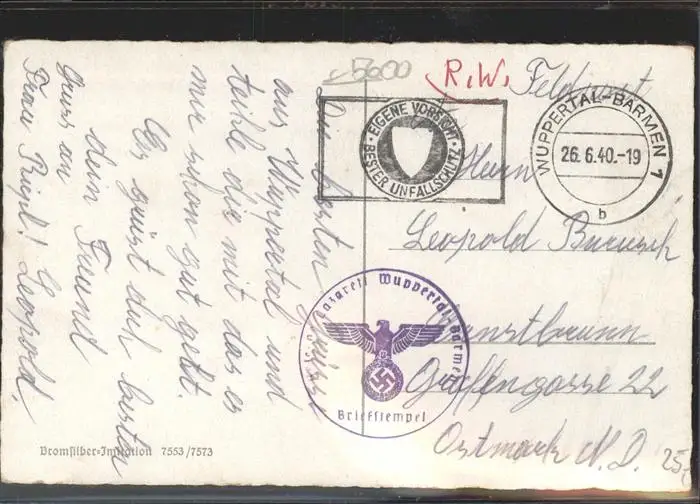 5600
R.W.
Feldpost
EIGENE VORSICHT · BESTER UNFALLSCHUTZ ·
WUPPERTAL-BARMEN 1
26.6.40.-19
b
Herrn
Leopold
Ernstbrunn
Gasse 22
Ostmark N.D.
Lazarett Wuppertal-Barmen
Briefstempel
Die besten Grüsse
aus Wuppertal und
teile dir mit das es
mir schon gut geht.
Es grüst dich bestens
dein Freund
Leopold.
Gruss an
Frau
Bromsilber=Imitation 7553/7573
25.-